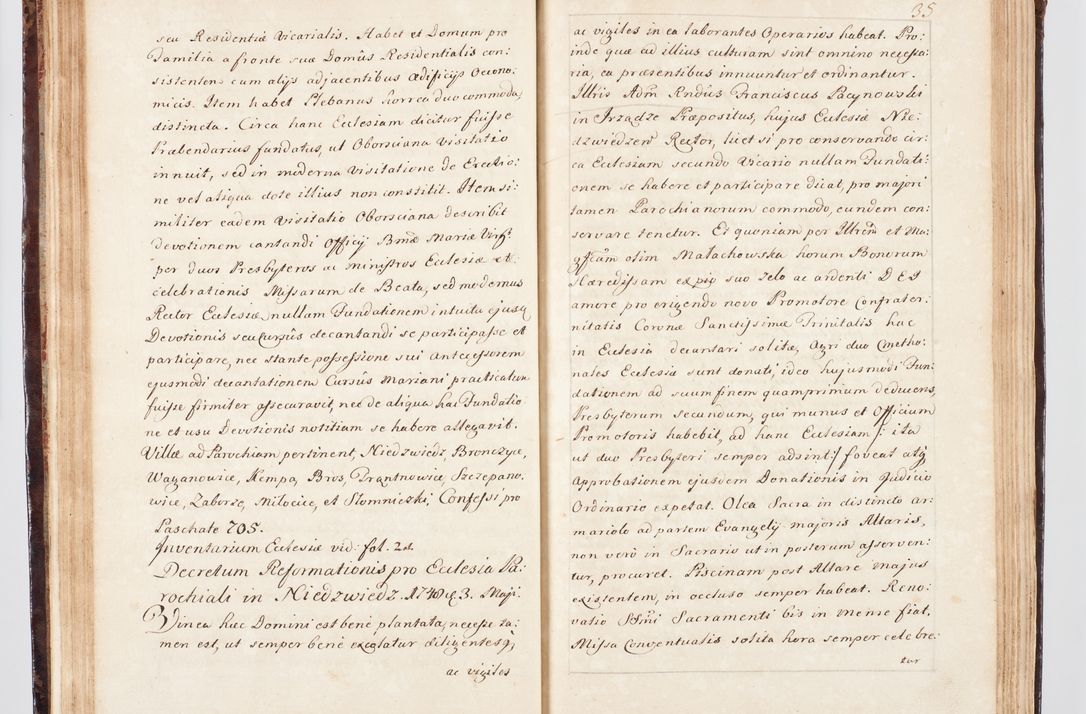 seu Residentiæ Vicarialis. Habet et Domum pro
Familia a fronte suæ Domûs Residentialis con:
sistentem cum alijs adjacentibus Ædificijs Oecono:
micis. Item habet Plebanus horrea duo commoda,
distincta. Circa hanc Ecclesiam dicitur fuisse
Præbendarius fundatus, ut Oborsciana Visitatio
innuit, sed in moderna Visitatione de Erectio:
ne vel aliqua dote illius non constitit. Item si:
militer eadem Visitatio Oborsciana describit
Devotionem cantandi Officij Bmæ Mariæ Virg:
per duos Presbyteros ac ministros Ecclesiæ et
celebrationis Missarum de Beata, sed modernus
Rector Ecclesiæ, nullam Fundationem intuitu ejusq
Devotionis seu Cursûs decantandi se participasse et
participare, nec stante possessione sui Antecessorem
ejusmodi decantationem Cursûs Mariani practicatum
fuisse firmiter assecuravit, nec de aliqua hac Fundatio
ne et usu Devotionis notitiam se habere allegavit.
Villæ ad Parochiam pertinent, Niedzwiedz, Bronczyce,
Waganowice, Kempa, Brus, Prantnowice, Szczepano,
wice, Zaborze, Miłocice, et Słomniczki, Confessi pro
Paschate 705.
Inventarium Ecclesiæ vid: fol. 2d.
Decretum Reformationis pro Ecclesia Pa:
rochiali in Niedzwiedz. 1748 3. Maji.
Vinea hæc Domini est benè plantata, necesse ta:
men est, ut semper benè excolatur diligentesq;
ac vigiles
35
ac vigiles in ea laborantes Operarios habeat. Pro:
inde quæ ad illius culturam sint omnino necessa:
ria, ea præsentibus innuuntur et ordinantur.
Illris Adm Rndus Franciscus Pacynowski
in Irządze Præpositus, hujus Ecclesiæ Nie:
dzwiedzen Rector, licet si pro conservando cir:
ca Ecclesiam secundo Vicario nullam Fundati:
onem se habere et participare dicat, pro majori
tamen Parochianorum commodo, eundem con:
servare tenetur. Et quoniam per Illrem et Ma:
gficam olim Małachowska horum Bonorum
Hæredissam ex pio suo zelo ac ardenti DEI
amore pro erigendo novo Promotore Confrater:
nitatis Coronæ Sanctissimæ Trinitatis hac
in Ecclesia decantari solitæ, Agri duo Cmetho:
nales Ecclesiæ sunt donati, ideo hujusmodi Fun:
dationem ad suum finem quamprimum deducens,
Presbyterum secundum, qui munus et Officium
Promotoris habebit, ad hanc Ecclesiam /: ita
ut duo Presbyteri semper adsint :/ foveat atq
Approbationem ejusdem Donationis in Judicio
Ordinario expetat. Olea Sacra in distincto ar:
mariolo ad partem Evangelij majoris Altaris,
non verò in Sacrario ut in posterum asserven:
tur, procuret. Piscinam post Altare majus
existentem, in occluso semper habeat. Reno:
vatio SSmi Sacramenti bis in mense fiat,
Missa Conventualis solita hora semper celebre:
tur